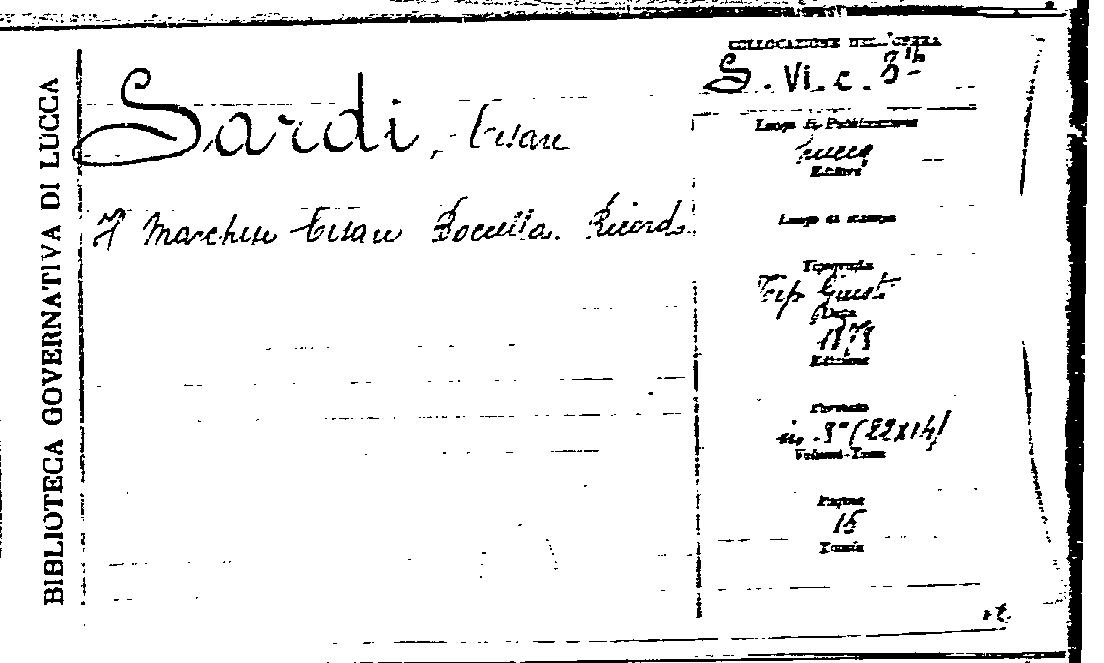 BIBLIOTECA GOVERNATIVA DI LUCCA
Sardi, Cesare
Il Marchese Cesare Boccella. Ricordi.
COLLOCAZIONE DELL'OPERA
S. VI. c.
Luogo di Pubblicazione
Lucca
Editore
Luogo di stampa
Tipografia
Tip Giusti
Data
1879
Edizione
Formato
in 8° (22x14)
Volumi-Tomi
Pagine
15
Tavole